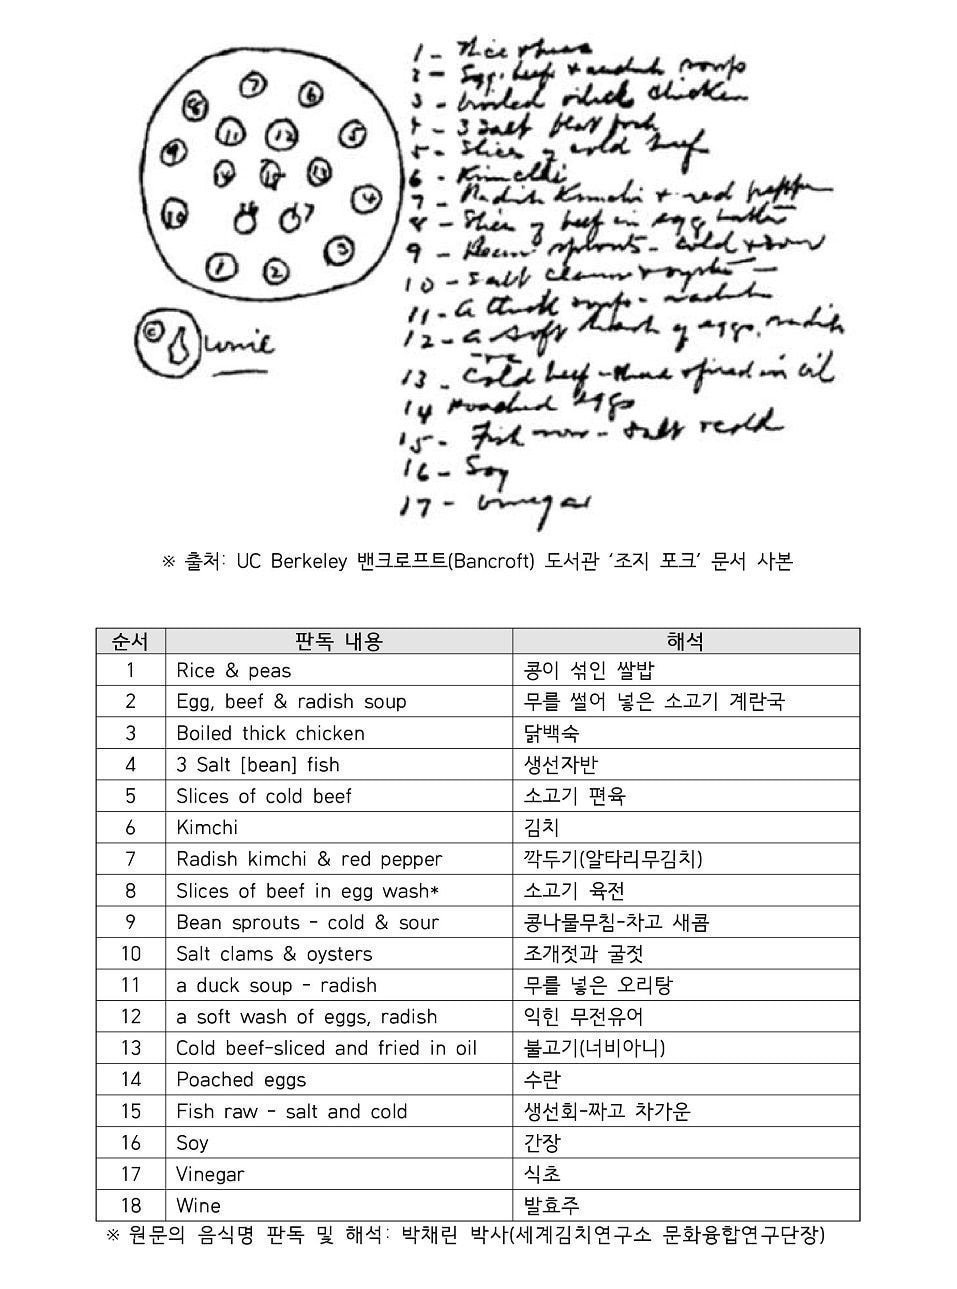 7
8
6
11
12
5
9
14
15
13
10
16
17
4
1
2
3
C
wine
1 - Rice & peas
2 - Egg, beef & radish soup
3 - boiled chicken
4 - 3 Salt fish
5 - Slices of cold beef
6 - Kimchi
7 - Radish Kimchi & red pepper
8 - Slices of beef in egg
9 - Bean sprouts - cold & sour
10 - Salt clams & oysters
11 - a soup - radish
12 - a soft of eggs, radish
13 - Cold beef - & fried in oil
14 Poached eggs
15 - Fish raw - salt & cold
16 - Soy
17 - Vinegar
※ 출처: UC Berkeley 밴크로프트(Bancroft) 도서관 ‘조지 포크’ 문서 사본
순서 판독 내용 해석
1 Rice & peas 콩이 섞인 쌀밥
2 Egg, beef & radish soup 무를 썰어 넣은 소고기 계란국
3 Boiled thick chicken 닭백숙
4 3 Salt [bean] fish 생선자반
5 Slices of cold beef 소고기 편육
6 Kimchi 김치
7 Radish kimchi & red pepper 깍두기(알타리무김치)
8 Slices of beef in egg wash* 소고기 육전
9 Bean sprouts - cold & sour 콩나물무침-차고 새콤
10 Salt clams & oysters 조개젓과 굴젓
11 a duck soup - radish 무를 넣은 오리탕
12 a soft wash of eggs, radish 익힌 무전유어
13 Cold beef-sliced and fried in oil 불고기(너비아니)
14 Poached eggs 수란
15 Fish raw - salt and cold 생선회-짜고 차가운
16 Soy 간장
17 Vinegar 식초
18 Wine 발효주
※ 원문의 음식명 판독 및 해석: 박채린 박사(세계김치연구소 문화융합연구단장)